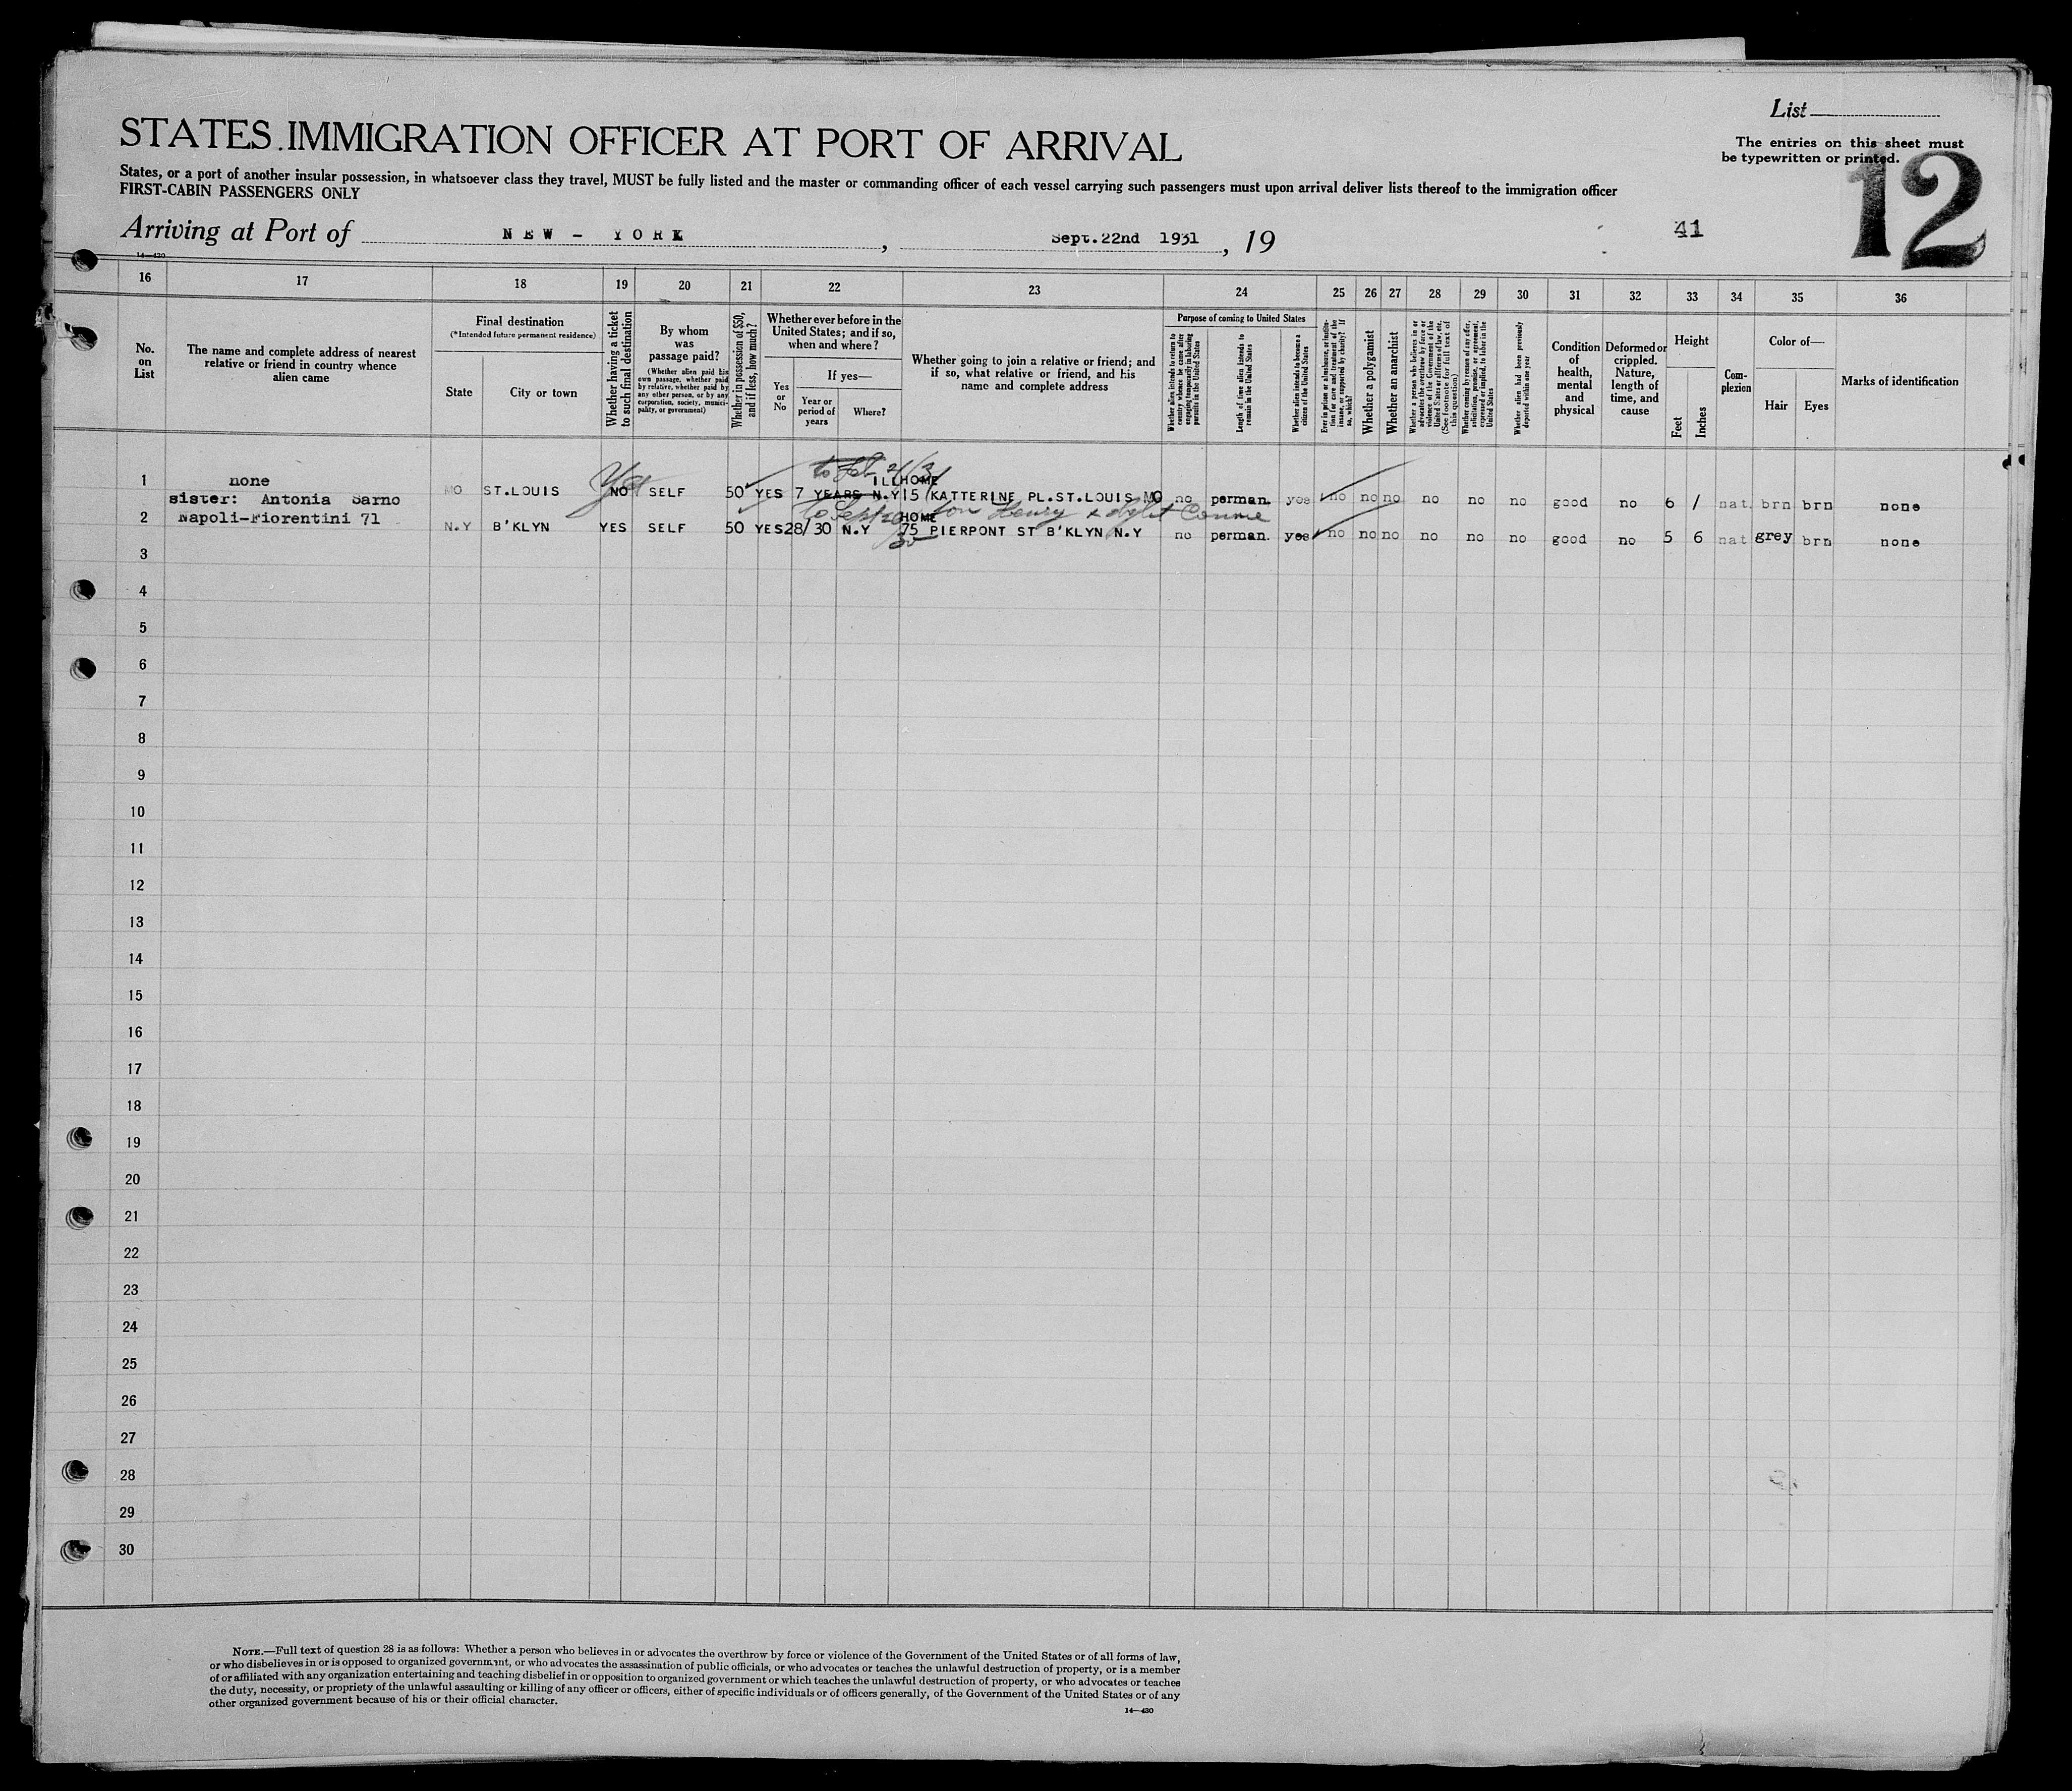 List
STATES IMMIGRATION OFFICER AT PORT OF ARRIVAL
The entries on this sheet must
be typewritten or printed.
12
States, or a port of another insular possession, in whatsoever class they travel, MUST be fully listed and the master or commanding officer of each vessel carrying such passengers must upon arrival deliver lists thereof to the immigration officer
FIRST-CABIN PASSENGERS ONLY
Arriving at Port of NEW - YORK, Sept. 22nd 1931, 19
41
14—430
16 17 18 19 20 21 22 23 24 25 26 27 28 29 30 31 32 33 34 35 36
No. on List
The name and complete address of nearest relative or friend in country whence alien came
Final destination
(*Intended future permanent residence)
State
City or town
Whether having a ticket to such final destination
By whom was passage paid?
(Whether alien paid his own passage, whether paid by relative, whether paid by any other person, or by any corporation, society, municipality, or government)
Whether in possession of $50, and if less, how much?
Whether ever before in the United States; and if so, when and where?
Yes or No
If yes—
Year or period of years
Where?
Whether going to join a relative or friend; and if so, what relative or friend, and his name and complete address
Purpose of coming to United States
Whether alien intends to return to country whence he came after engaging temporarily in laboring pursuits in the United States
Length of time alien intends to remain in the United States
Whether alien intends to become a citizen of the United States
Ever in prison or almshouse, or institution for care and treatment of the insane, or supported by charity? If so, which?
Whether a polygamist
Whether an anarchist
Whether a person who believes in or advocates the overthrow by force or violence of the Government of the United States or all forms of law, etc. (See footnote for full text of this question)
Whether coming by reason of any offer, solicitation, promise, or agreement, expressed or implied, to labor in the United States
Whether alien had been previously deported within one year
Condition of health, mental and physical
Deformed or crippled. Nature, length of time, and cause
Height
Feet
Inches
Complexion
Color of—
Hair
Eyes
Marks of identification
1 none MO ST.LOUIS NO Yes SELF 50 YES 7 YEARS N.Y ILL HOME
15 KATTERINE PL.ST.LOUIS MO no perman. yes no no no no no no good no 6 / nat. brn brn none
sister: Antonia Sarno
2 Napoli-Fiorentini 71 N.Y B'KLYN YES SELF 50 YES 28/30 N.Y HOME son Henry
75 PIERPONT ST B'KLYN N.Y no perman. yes no no no no no no good no 5 6 nat grey brn none
3
4
5
6
7
8
9
10
11
12
13
14
15
16
17
18
19
20
21
22
23
24
25
26
27
28
29
30
NOTE.—Full text of question 28 is as follows: Whether a person who believes in or advocates the overthrow by force or violence of the Government of the United States or of all forms of law,
or who disbelieves in or is opposed to organized government, or who advocates the assassination of public officials, or who advocates or teaches the unlawful destruction of property, or is a member
of or affiliated with any organization entertaining and teaching disbelief in or opposition to organized government or which teaches the unlawful destruction of property, or who advocates or teaches
the duty, necessity, or propriety of the unlawful assaulting or killing of any officer or officers, either of specific individuals or of officers generally, of the Government of the United States or of any
other organized government because of his or their official character.
14—430